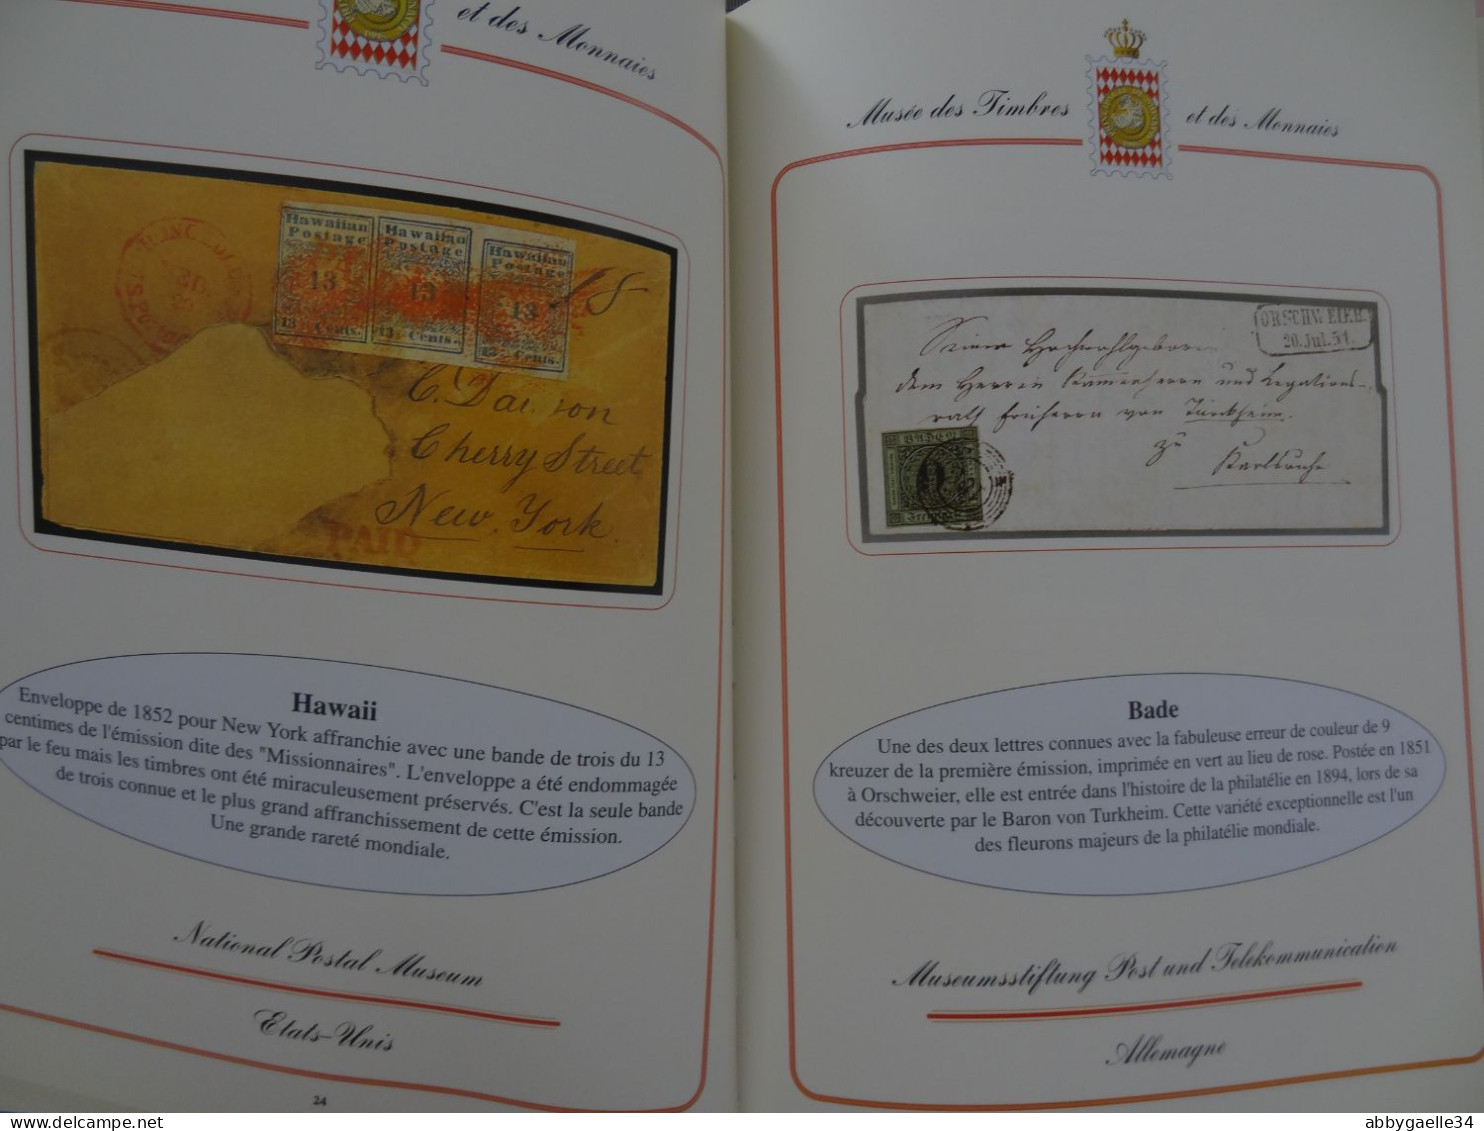 et des Monnaies
Hawaiian
Postage
13
13 Cents.
Hawaiian
Postage
13
13 Cents.
Hawaiian
Postage
13
13 Cents.
Cherry Street
New York
PAID
Hawaii
Enveloppe de 1852 pour New York affranchie avec une bande de trois du 13
centimes de l'émission dite des "Missionnaires". L'enveloppe a été endommagée
par le feu mais les timbres ont été miraculeusement préservés. C'est la seule bande
de trois connue et le plus grand affranchissement de cette émission.
Une grande rareté mondiale.
National Postal Museum
Etats-Unis
24
Musée des Timbres et des Monnaies
ORSCHWEIER.
20. Jul. 51.
Seiner Hochwohlgeboren
dem Herren Kammerherrn und Legations-
rath Freiherrn von Türckheim.
zu
Karlsruhe
BADEN
9
Bade
Une des deux lettres connues avec la fabuleuse erreur de couleur de 9
kreuzer de la première émission, imprimée en vert au lieu de rose. Postée en 1851
à Orschweier, elle est entrée dans l'histoire de la philatélie en 1894, lors de sa
découverte par le Baron von Turkheim. Cette variété exceptionnelle est l'un
des fleurons majeurs de la philatélie mondiale.
Museumsstiftung Post und Telekommunication
Allemagne
abbygaelle34